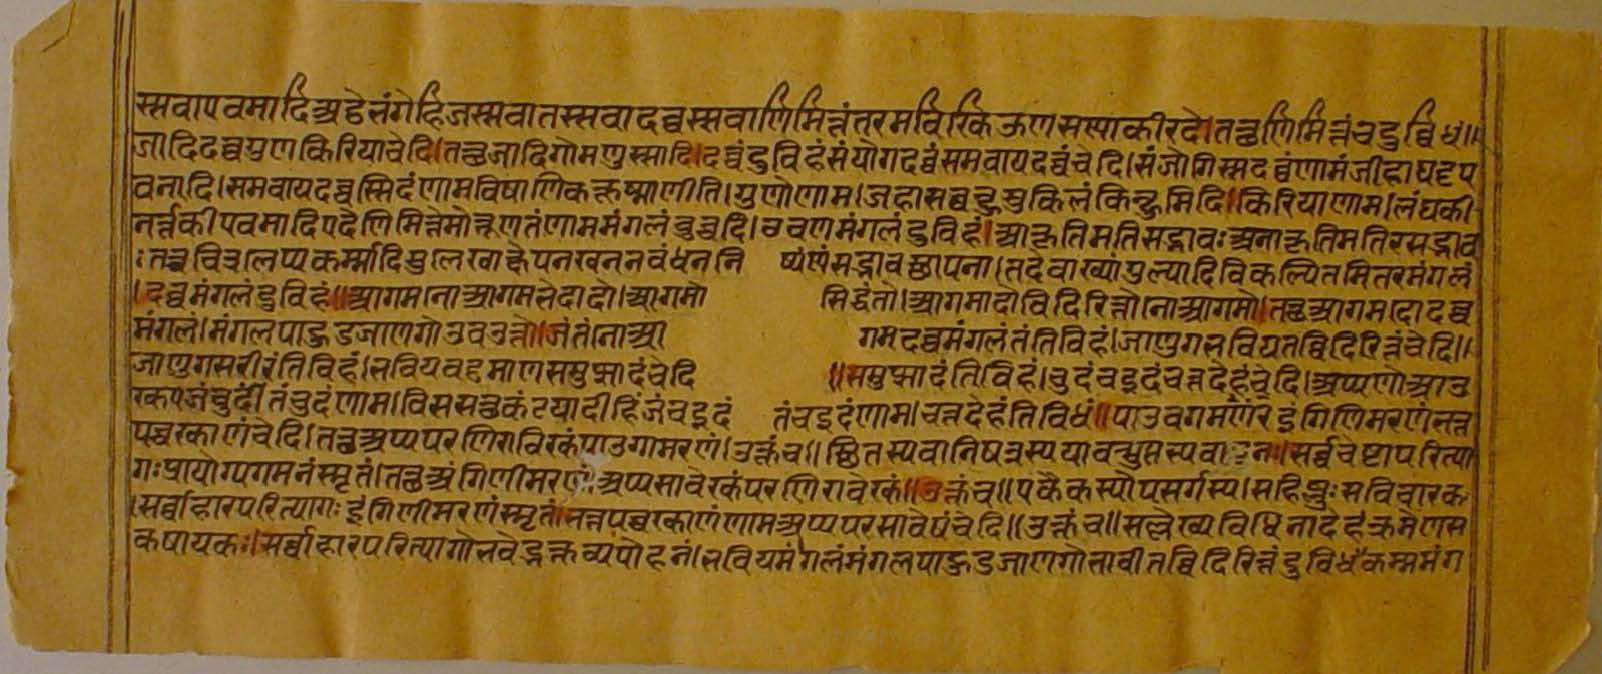 स्सवाएवमादिअट्ठेसंगेहिजस्सवातस्सवादव्वस्सवाणिमित्तंतरमविरकिऊणसस्माकीरदे।तच्छणिमित्तंचदुव्विधं॥
जादिदव्वगुणकिरियाचेदि।तच्छजादिगोमणुस्सादि।दव्वंदुविहंसंयोगदव्वंसमवायदव्वंचेदि।संजोगिस्मदव्वंणामंजीहा
वनादि।समवायदव्वस्सिदंणामविषाणिककुष्माणीति।गुणोणाम।जहासव्वण्हुसुकिलंकिन्हमिदि।किरियाणाम।लंघकी
नर्त्तकीएवमादिएदेणिमित्तेमोत्तूणतंणाममंगलंवुच्चदि।ठवणमंगलंदुविहं।आकृतिमतिसद्भावःअनाकृतिमतिरसद्भाव
ःतच्चचित्रलेप्यकर्म्मादिसुलिखाक्षेपनखननबंधननि ष्पंणंसद्भावस्छापना।तदेवाख्यांगुल्यादिविकल्पितमितरमंगलं
।दव्वमंगलंदुविहं॥आगम।नोआगमभेदादो।आगमो सिद्धंतो।आगमादोवदिरित्तो।नोआगमो।तच्छआगमदोदव्व
मंगलं।मंगलपाहुडजाणगोउवउत्तो।जंतंनोआ गमदव्वमंगलंतंतिविहं।जाणुगभवियतव्विदिरित्तंचेदि॥
जाणुगसरीरंतिविहं।भवियवट्टमाणसमुझादंचेदि ॥समुझादंतिविहं।चुदंचइदंचत्तदेहंचेदि।अप्पणोआउ
तंचुदंणाम।विससच्छकंटयादीहिंजंचइदं तंचइदंणाम।चत्तदेहंतिविधं॥पाउवगमणंइंगिणिमरणंभत्त
पच्चरकाणंचेदि।तच्छअप्पपरणिराविरकंपाउगामरणं।उक्तंच॥स्छितस्यवानिषन्नस्ययावत्सुप्तस्यवा सर्व्वचेष्टापरित्या
गःप्रायोग्यगमनंस्मृतं।तच्छअंगिणीमरणंअप्पसावेरकंपरणिरावेरकं॥उक्तंच॥एकैकस्यौपसर्गस्य।सहिष्णुःसविचारकः
।सर्व्वाहारपरित्यागःइंगिणीमरणंस्मृतं।भत्तपच्चरकाणंणामअप्पपरसावेषंचेदि॥उक्तंच॥सल्लेख्यविधिनादेहंक्रमेणस
कषायकः॥सर्व्वाहारपरित्यागोभवेद्भक्तव्यपोहनं।भवियमंगलंमंगलपाहुडजाणगोभावीतव्विदिरित्तंदुविधंकम्ममंग